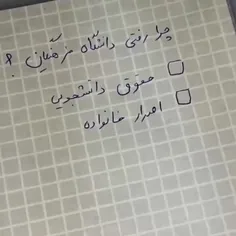 چرا رفتی دانشگاه فرهنگیان ؟
□ حقوق دانشجویی
□ اصرار خانواده